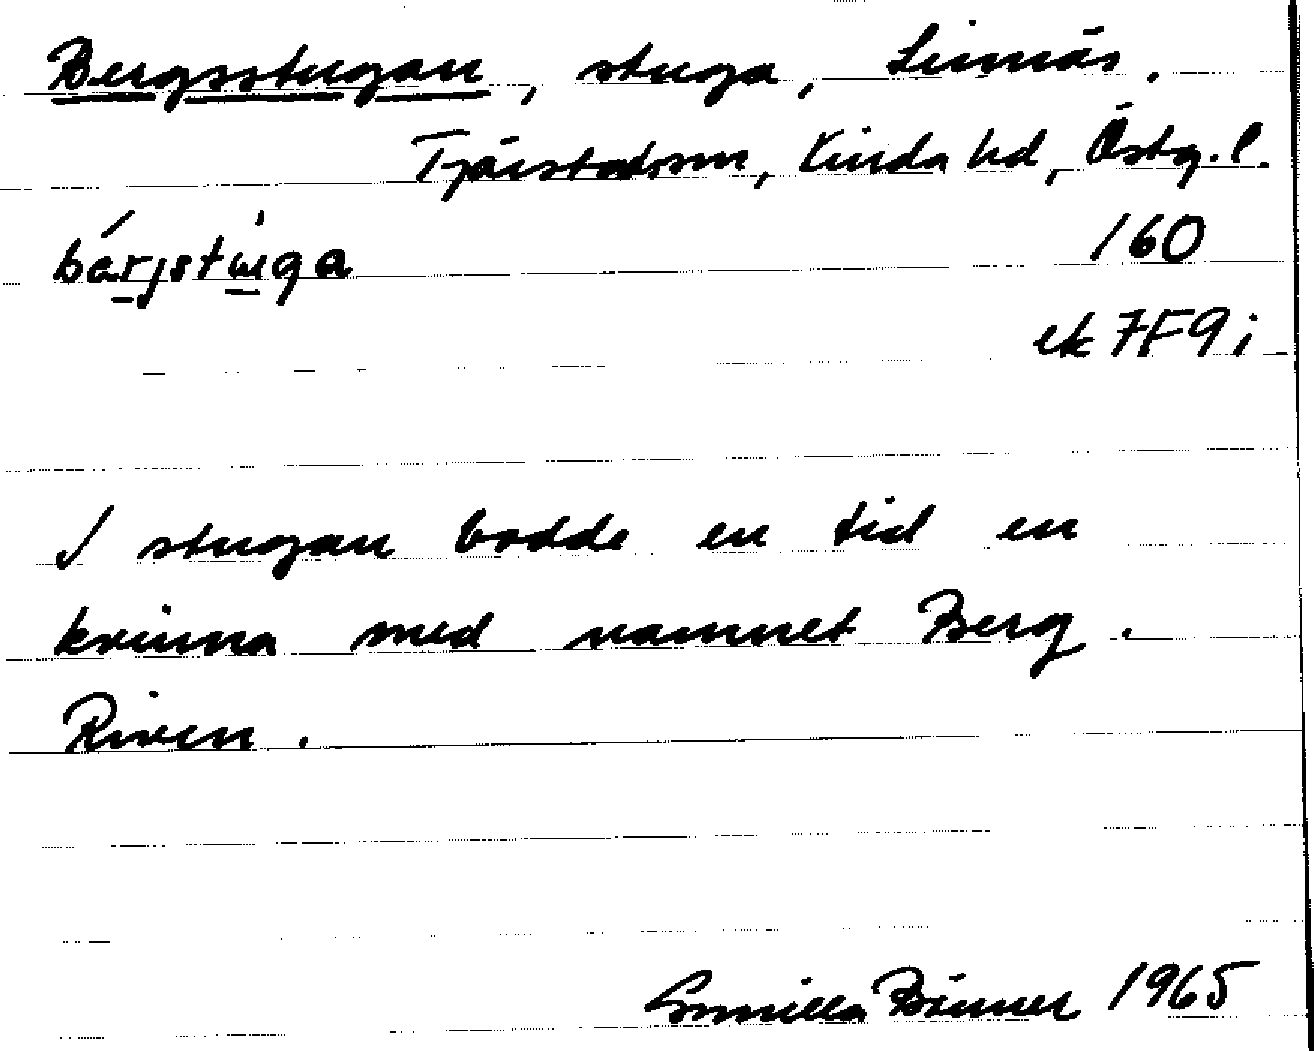 Bergsstugan, stuga, Linnäs.
Tjärstad sn, Kinda hd, Östg. l.
bárjstùga 160
ek 7F9i
I stugan bodde en tid en
kvinna med namnet Berg.
Riven.
Gunilla 1965